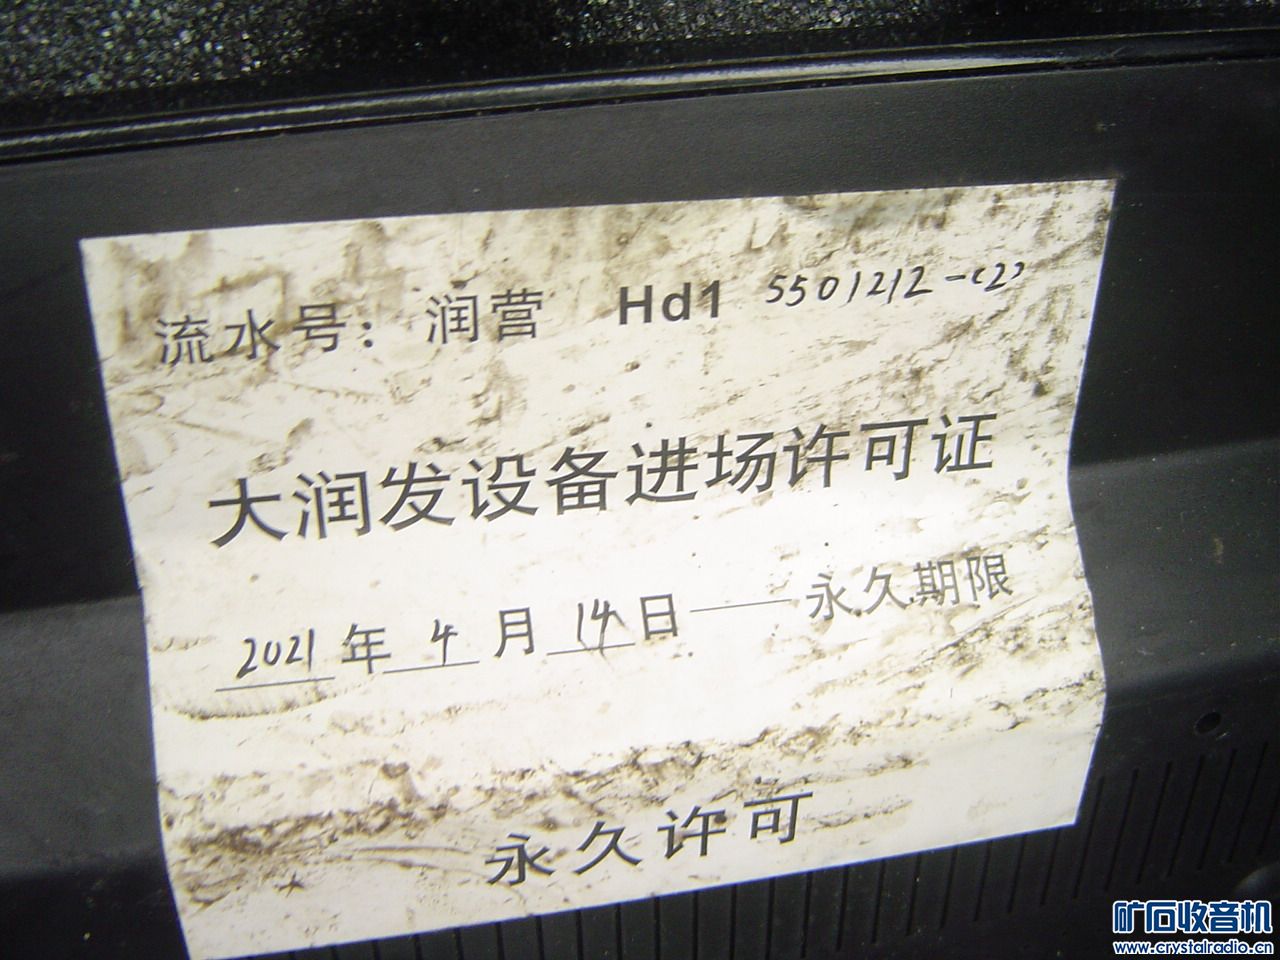 流水号：润营 Hd1 5501212-(2)
大润发设备进场许可证
2021年4月14日——永久期限
永久许可
矿石收音机
www.crystalradio.cn